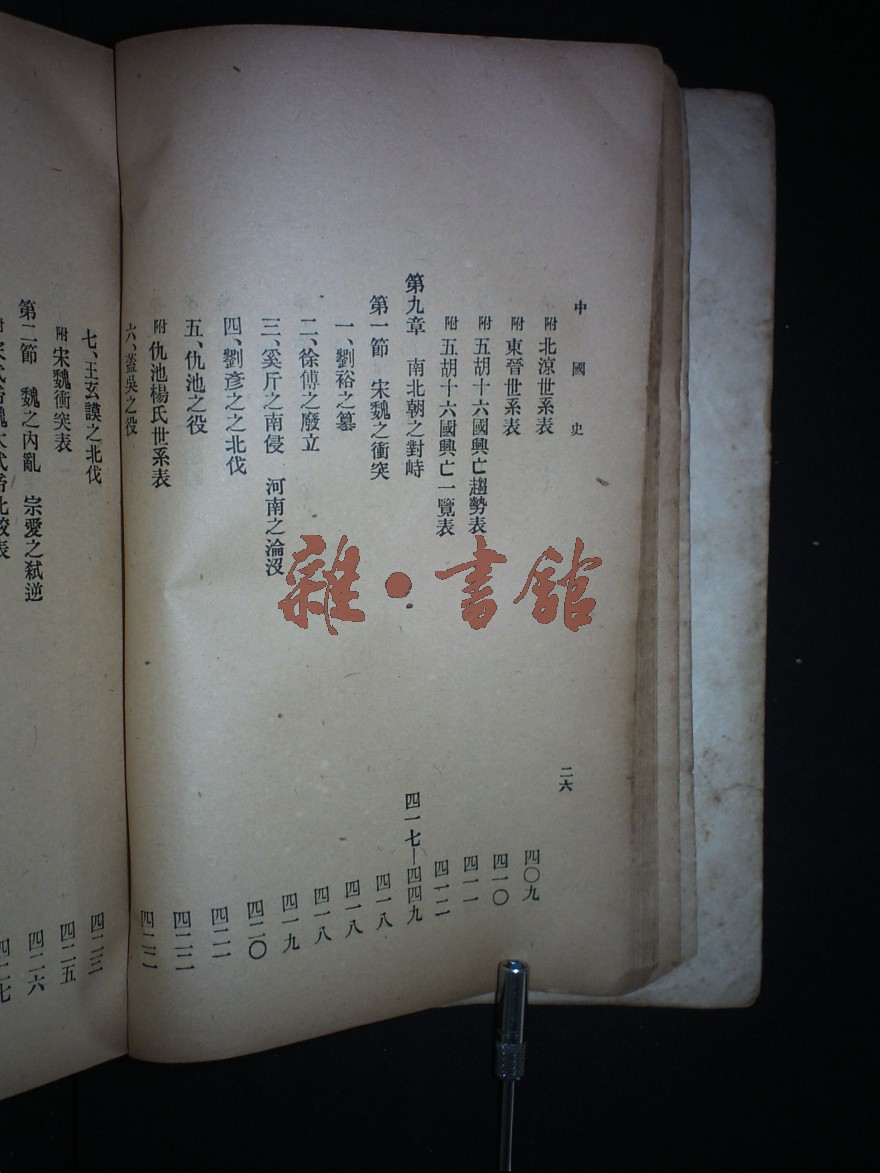 中國史
二六
附 北涼世系表 四〇九
附 東晉世系表 四一〇
附 五胡十六國興亡趨勢表 四一一
附 五胡十六國興亡一覽表 四一二
第九章 南北朝之對峙 四一七—四四九
第一節 宋魏之衝突 四一八
一、劉裕之篡 四一八
二、徐傅之廢立 四一八
三、奚斤之南侵 河南之淪沒 四一九
四、劉彥之之北伐 四二〇
五、仇池之役 四二二
附 仇池楊氏世系表 四二二
六、蓋吳之役 四二二
七、王玄謨之北伐 四二三
附 宋魏衝突表 四二五
第二節 魏之內亂 宗愛之弒逆 四二六
四二七
雜·書館